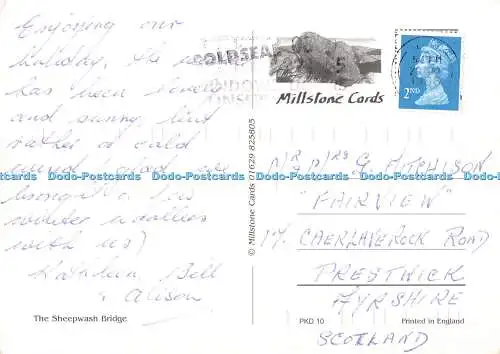 Enjoying our
holiday, the
has been lovely
and sunny, but
rather a cold
wind, glad we
brought a few
winter woollies
with us)
Kathleen Bill
& Alison
The Sheepwash Bridge
© Millstone Cards 01629 825805
COLDSEAL
WINDOWS
Millstone Cards
2ND
Mr & Mrs G AITCHISON
"FAIRVIEW"
17 CAERLAVEROCK ROAD
PRESTWICK
AYRSHIRE
SCOTLAND
PKD 10
Printed in England
Dodo-Postcards Dodo-Postcards Dodo-Postcards Dodo-Postcards Dodo-Postcards